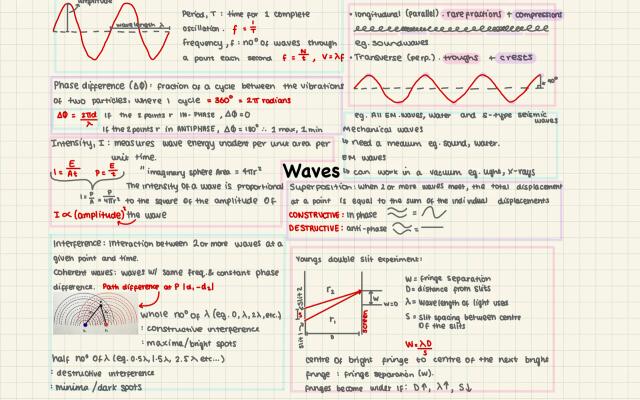 amplitude
wavelength λ
Period, T : time for 1 complete
oscillation. f = 1/T
Frequency, f : n° of waves through
a point each second f = N/t , V = λf
• longitudinal (parallel) . rarefractions + compressions
eg. soundwaves
• Transverse (perp.) . troughs + crests
90°
eg. All EM.waves, water and s-type seismic
waves
Mechanical waves
↳ need a medium eg. sound, water.
EM waves
↳ can work in a vacuum eg. light, x-rays
Phase difference (ΔΦ): fraction of a cycle between the vibrations
of two particles, where 1 cycle = 360° = 2π radians
ΔΦ = 2πd/λ if the 2 points r IN-PHASE , ΔΦ = 0
if the 2 points r in ANTIPHASE, ΔΦ = 180° ∴ 1 max, 1 min
Intensity, I : measures wave energy incident per unit area per
unit time.
I = E/At P = E/t
" imaginary sphere Area = 4πr²
I = P/A = P/4πr²
The intensity of a wave is proportional
to the square of the amplitude of
I ∝ (amplitude)² the wave
Waves
Superposition: when 2 or more waves meet, the total displacement
at a point is equal to the sum of the individual displacements
CONSTRUCTIVE: in phase =
DESTRUCTIVE: anti-phase =
Interference: interaction between 2 or more waves at a
given point and time.
Coherent waves: waves w/ same freq. & constant phase
difference. Path difference at P |d₁-d₂|
whole no° of λ (eg. 0, λ, 2λ, etc.)
: constructive interference
: maxima/bright spots
half no° of λ (eg. 0.5λ, 1.5λ, 2.5λ etc...)
: destructive interference
: minima /dark spots
Youngs double slit experiment:
slit 2
slit 1
S
r₂
r₁
D
W
w=0
screen
W = fringe separation
D = distance from slits
λ = wavelength of light used
S = slit spacing between centre
of the slits
W = λD/S
centre of bright fringe to centre of the next bright
fringe : fringe separation (w).
fringes become wider if: D↑, λ↑, S↓